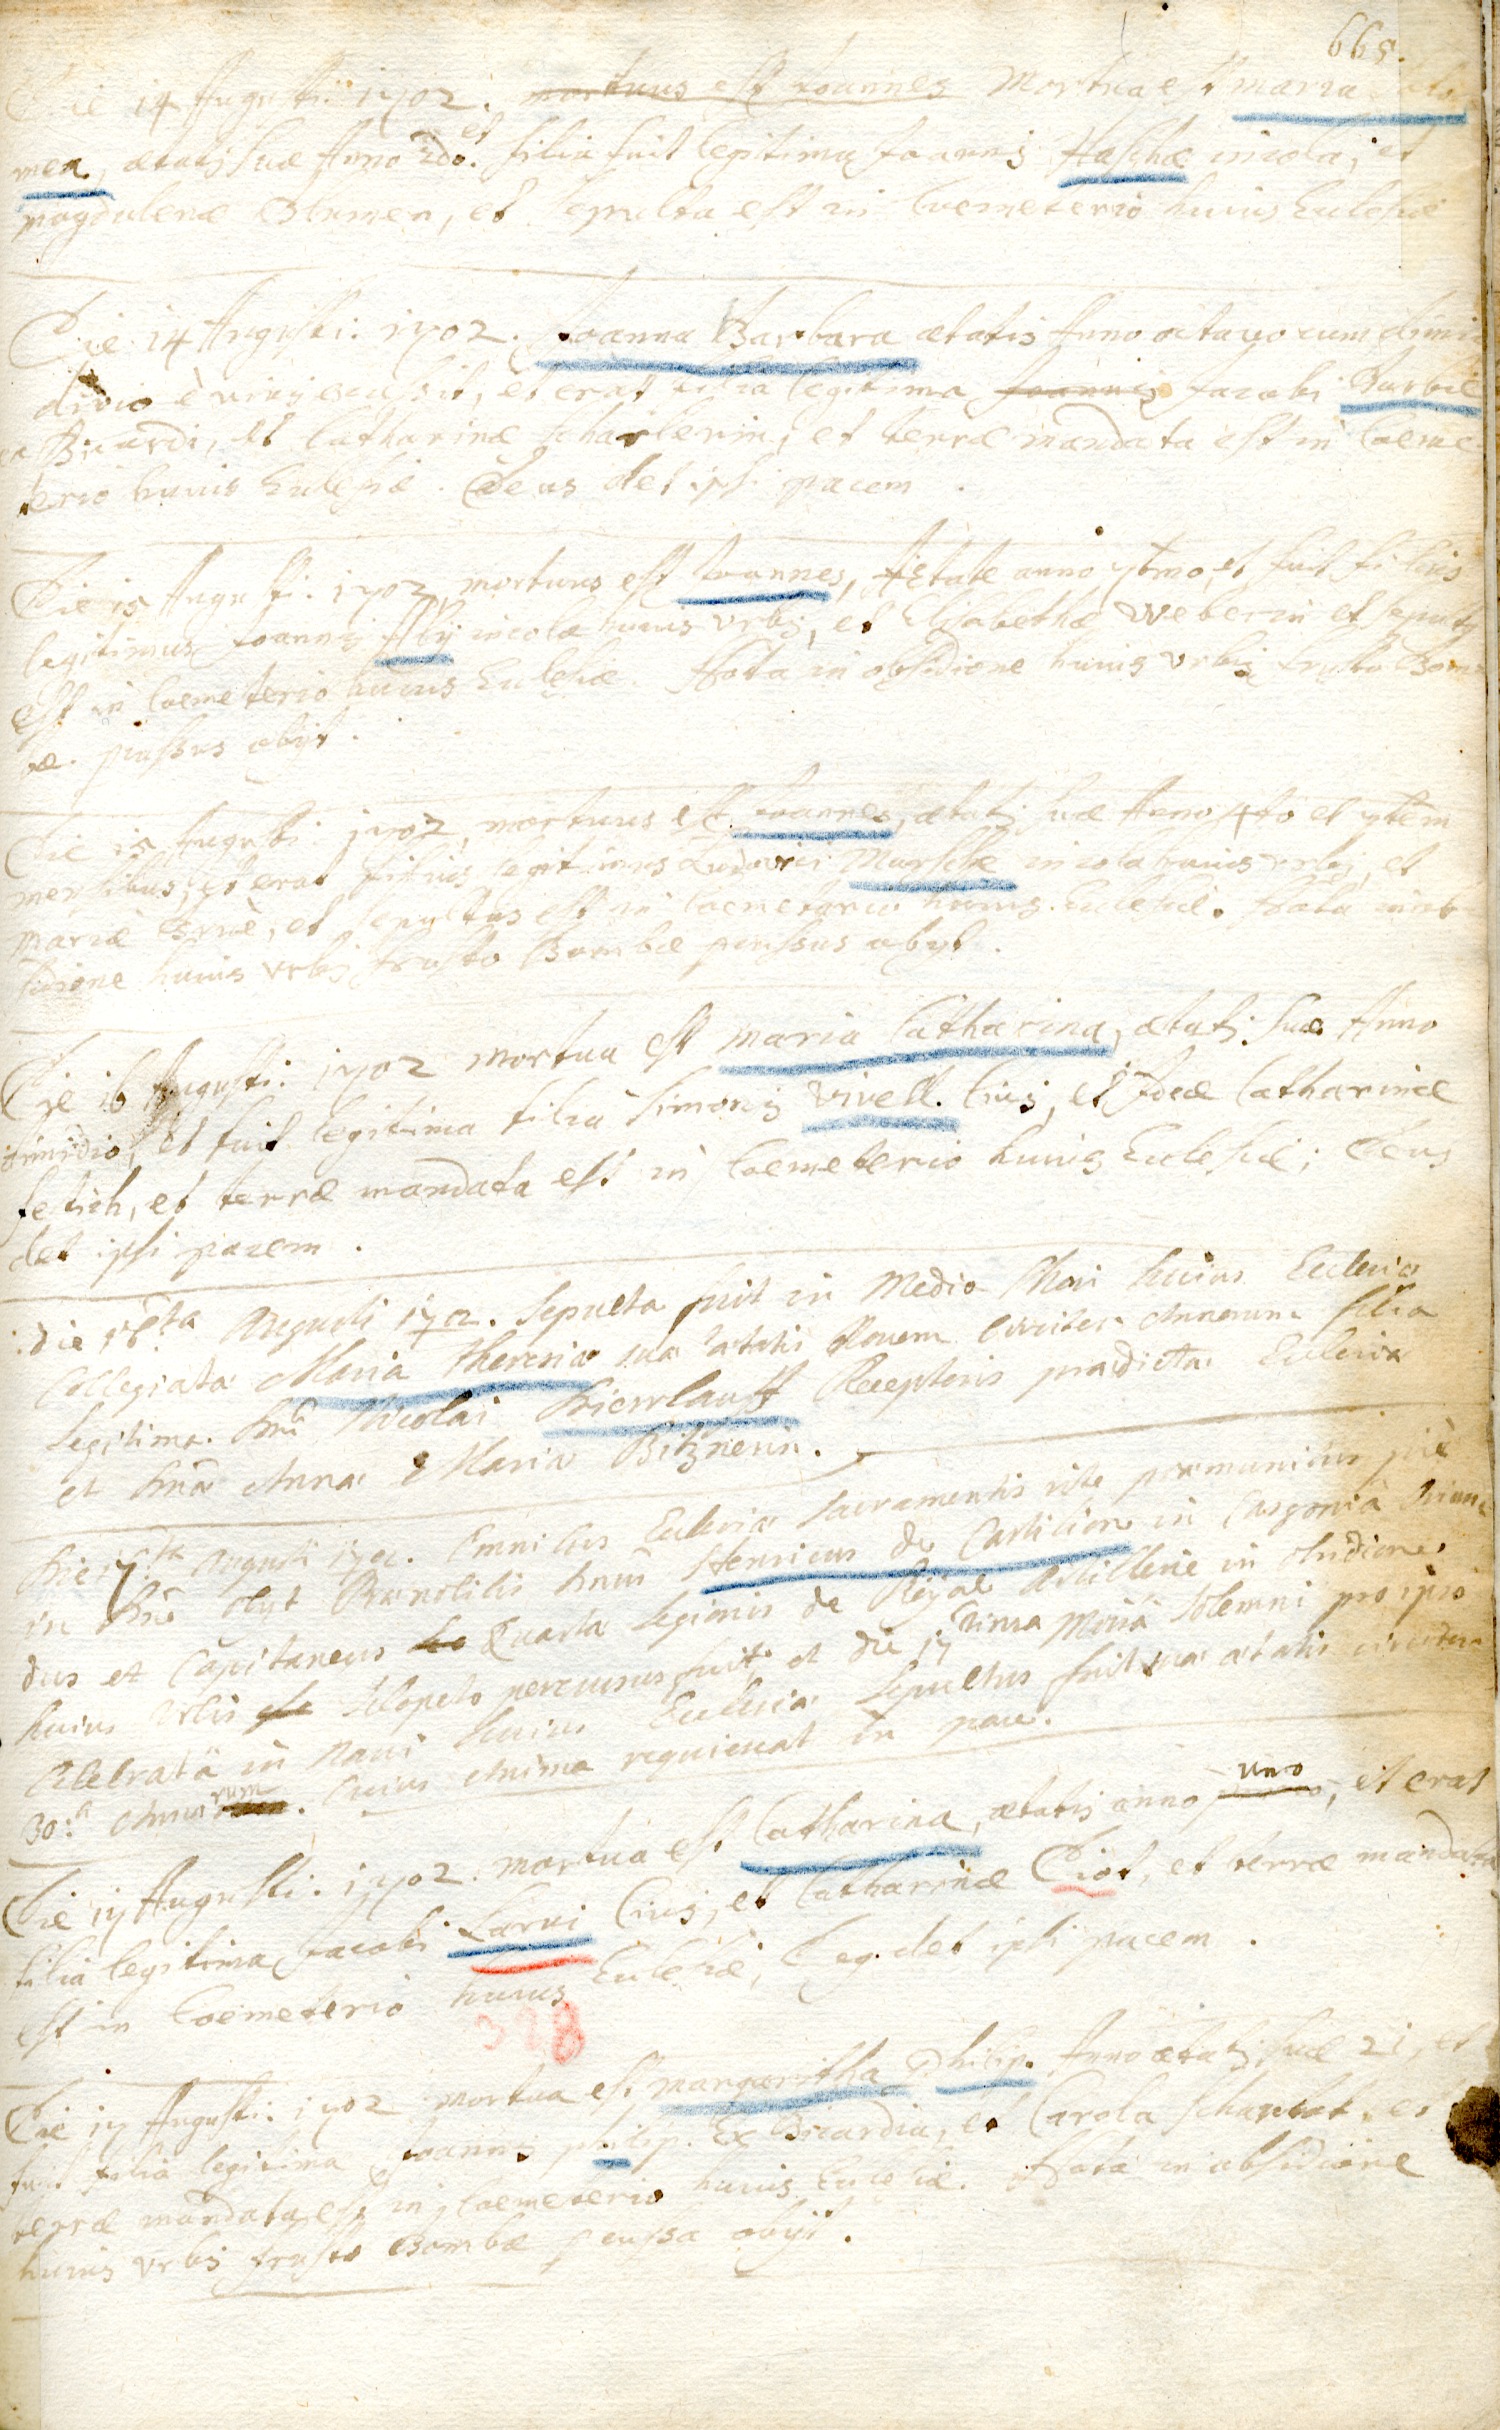 665.
Die 14 Augusti. 1702. mortuus est Joannes Mortua est maria
men, ætatis suæ Anno 2do. et filia fuit legitima Joannis Haschæ incolæ, et
magdalenæ Blumen, et sepulta est in Coemeterio huius Eclesiæ
Die 14 Augusti. 1702. Joanna Barbara ætatis Anno octavo cum dimi
dio è vivis excessit, et erat filia legitima Joannis Jacobi Barbié
ex Bicardi, et Catharinæ scharlerin, et terræ mandata est in Coeme
terio huius Eclesiæ. Deus det ipsi pacem.
Die 15 Augusti. 1702 mortuus est Joannes, Ætate anno 7tmo, et fuit filius
legitimus Joannis Aby incolæ huius urbis, et Elisabethæ Weberin et sepults
est in Coemeterio huius Eclesiæ. Nota in obsidione huius urbis frusto Bom
bæ. pussus obijt.
Die 15 Augusti. 1702, mortuus est Joannes, ætatis suæ Anno 4to et 7tem
mensibus, et erat filius legitimus Ludovici Marschæ incola huius urbis, et
Mariæ Grué, et sepultus est in Coemeterio huius Eclesiæ. Nota in ob
sidione huius urbis frusto Bombæ perssus obyt.
Die 16 Augusti. 1702 mortua est maria Catharina, ætatis suæ Anno
dimidio, et fuit legitima filia simonis Vivell. Civis, et Judæ Catharinæ
fetish, et terræ mandata est in Coemeterio huius Eclesiæ; Deus
det ipsi pacem.
die 16ta Augusti 1702. Sepulta fuit in Medio Chori huius Ecclesiæ
Collegiatæ Maria Theresia suæ ætatis Novem Circiter Annorum filia
Legitima Dni Nicolai Frierlauff Receptoris prædictæ Ecclesiæ
et Dnæ Annæ Mariæ Bitznerin.
Die 17ta Augusti 1702. Omnibus Ecclesiæ Sacramentis rite præmunitus piè
in Dno obyt Prænobilis Dnus Henricus de Castilion in Casgonia Oriun
dus et Capitaneus Quartæ Legionis de Reijal Artillerie in obsidione
huius Urbis Sclopeto percussus fuit et die 17 Missa Solemni pro ipso
Celebrata in Navi huius Ecclesiæ Sepultus fuit suæ ætatis circiter
30ta Annorum. Cuius Anima requiescat in pace.
Die 17 Augusti. 1702. mortua est Catharina, ætatis anno uno, et erat
filia legitima Jacobi Larui Civis, et Catharinæ Diot, et terræ mandata
est in Coemeterio huius Eclesiæ, Deq. det ipsi pacem.
328
Die 17 Augusti. 1702 mortua est margaritha Philip. Anno ætatis suæ 21, et
fuit filia legitima Joannis philip. Ex Bicardia, et Carola schantet. et
terræ mandata est in Coemeterio huius Eclesiæ. Nota in obsidione
huius urbis frusto Bombæ perssa obijt.